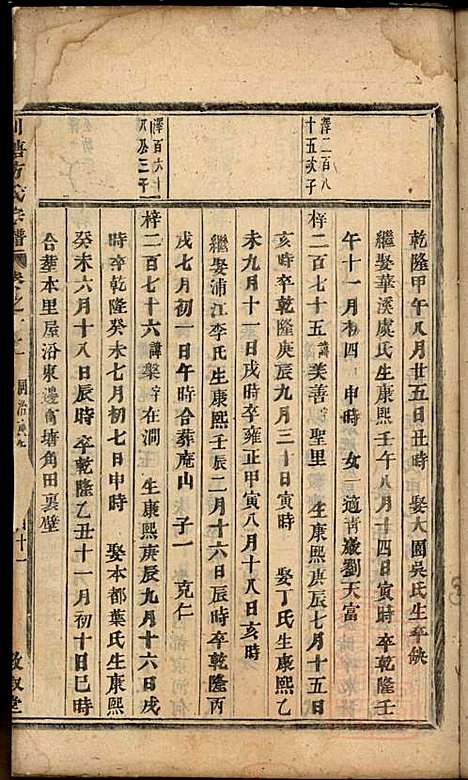 乾隆甲午八月廿五日丑時 娶大園吳氏生卒缺
繼娶華溪虞氏生康熙壬午八月十四日寅時卒乾隆壬
午十一月初四日申時 女一適靑巖劉天富
澤二百八
十五次子
梓二百七十五諱美善字聖里 生康熙庚辰七月十五日
亥時卒乾隆庚辰九月三十日寅時 娶丁氏生康熙乙
未九月十二日戌時卒雍正甲寅八月十八日亥時
繼娶浦江李氏生康熙壬辰二月十六日辰時卒乾隆丙
戌七月初一日午時合葬庵山 子一 克仁
澤百六十
八公三子
梓二百七十六諱槃字在澗 生康熙庚辰九月十六日戌
時卒乾隆癸未七月初七日申時 娶本都葉氏生康熙
癸未六月十八日辰時卒乾隆乙丑十一月初十日巳時
合塟本里屋沿東邊角墻角田裏壁
方氏宗譜
敦叙堂